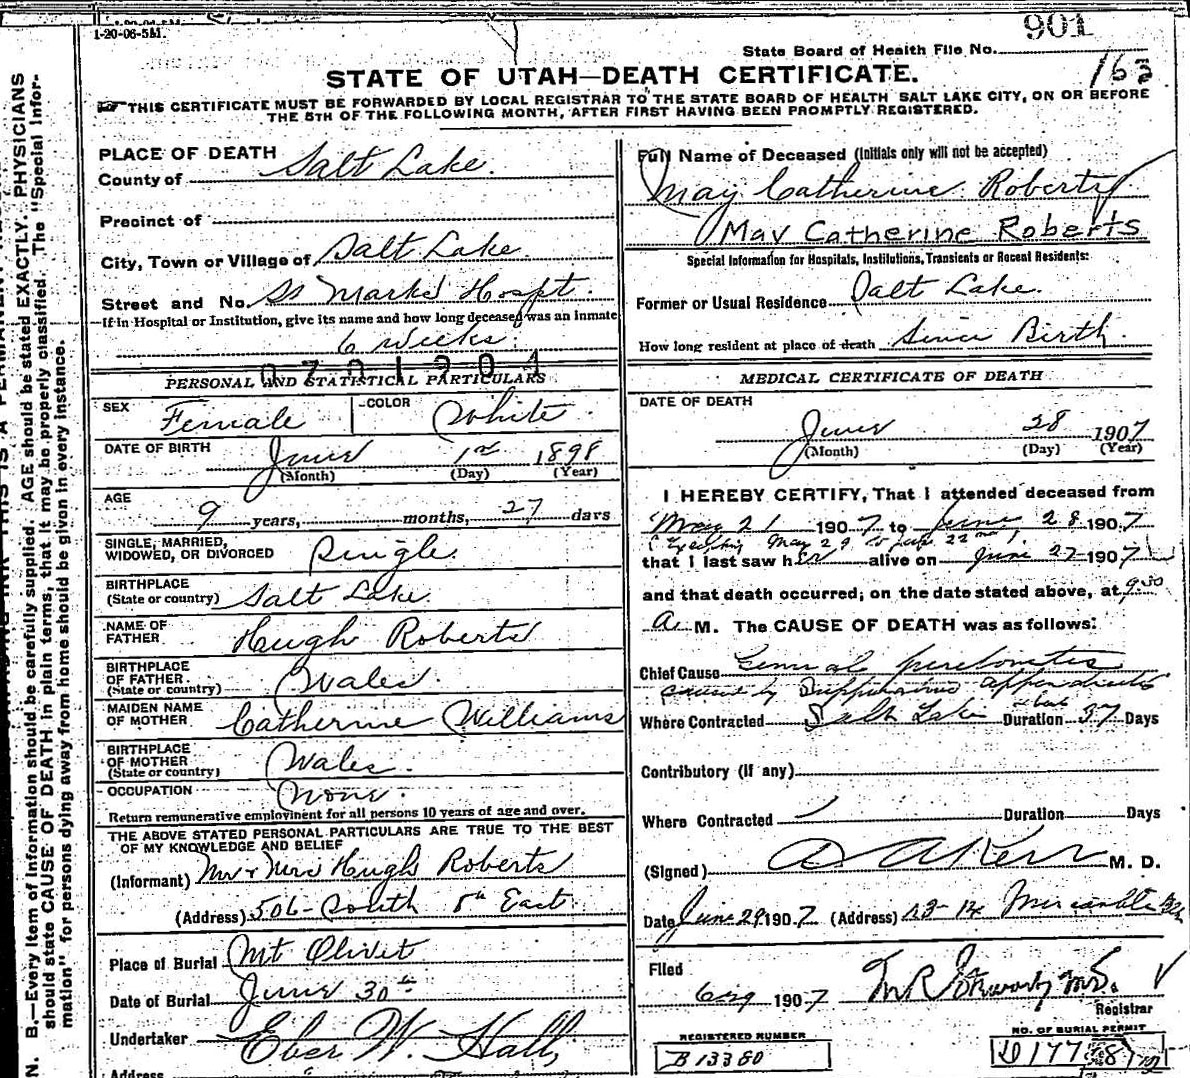 1-20-06-5M.
901
State Board of Health File No.
163
STATE OF UTAH—DEATH CERTIFICATE.
THIS CERTIFICATE MUST BE FORWARDED BY LOCAL REGISTRAR TO THE STATE BOARD OF HEALTH SALT LAKE CITY, ON OR BEFORE
THE 5TH OF THE FOLLOWING MONTH, AFTER FIRST HAVING BEEN PROMPTLY REGISTERED.
PLACE OF DEATH
County of Salt Lake.
Precinct of
City, Town or Village of Salt Lake
Street and No. St Marks Hospt.
If in Hospital or Institution, give its name and how long deceased was an inmate
6 Weeks.
0701904
PERSONAL AND STATISTICAL PARTICULARS
SEX Female COLOR White
DATE OF BIRTH June 1st 1898
(Month) (Day) (Year)
AGE
9 years, months, 27 days
SINGLE, MARRIED,
WIDOWED, OR DIVORCED Single
BIRTHPLACE
(State or country) Salt Lake
NAME OF
FATHER Hugh Roberts
BIRTHPLACE
OF FATHER
(State or country) Wales
MAIDEN NAME
OF MOTHER Catherine Williams
BIRTHPLACE
OF MOTHER
(State or country) Wales
OCCUPATION None
Return remunerative employment for all persons 10 years of age and over.
THE ABOVE STATED PERSONAL PARTICULARS ARE TRUE TO THE BEST
OF MY KNOWLEDGE AND BELIEF
(Informant) Mr & Mrs Hugh Roberts
(Address) 506 South 5th East
Place of Burial Mt Olivet
Date of Burial June 30th
Undertaker Eber W. Hall
Address
Full Name of Deceased (Initials only will not be accepted)
May Catherine Roberts
May Catherine Roberts
Special Information for Hospitals, Institutions, Transients or Recent Residents:
Former or Usual Residence Salt Lake.
How long resident at place of death Since Birth
MEDICAL CERTIFICATE OF DEATH
DATE OF DEATH
June 28 1907
(Month) (Day) (Year)
I HEREBY CERTIFY, That I attended deceased from
May 21 1907 to June 28 1907
(Excepting May 29 to June 22nd)
that I last saw her alive on June 27 1907
and that death occurred, on the date stated above, at 9:30
A. M. The CAUSE OF DEATH was as follows:
Chief Cause General peritonitis
caused by Suppurative appendicitis
Where Contracted Salt Lake Duration about 37 Days
Contributory (if any)
Where Contracted Duration Days
(Signed) M. D.
Date June 29 1907 (Address) 13-14 Mercantile Blk
Filed
1907
Registrar
REGISTERED NUMBER
B13360
NO. OF BURIAL PERMIT
N. B.—Every item of information should be carefully supplied. AGE should be stated EXACTLY. PHYSICIANS
should state CAUSE OF DEATH in plain terms, that it may be properly classified. The "Special Infor-
mation" for persons dying away from home should be given in every instance.